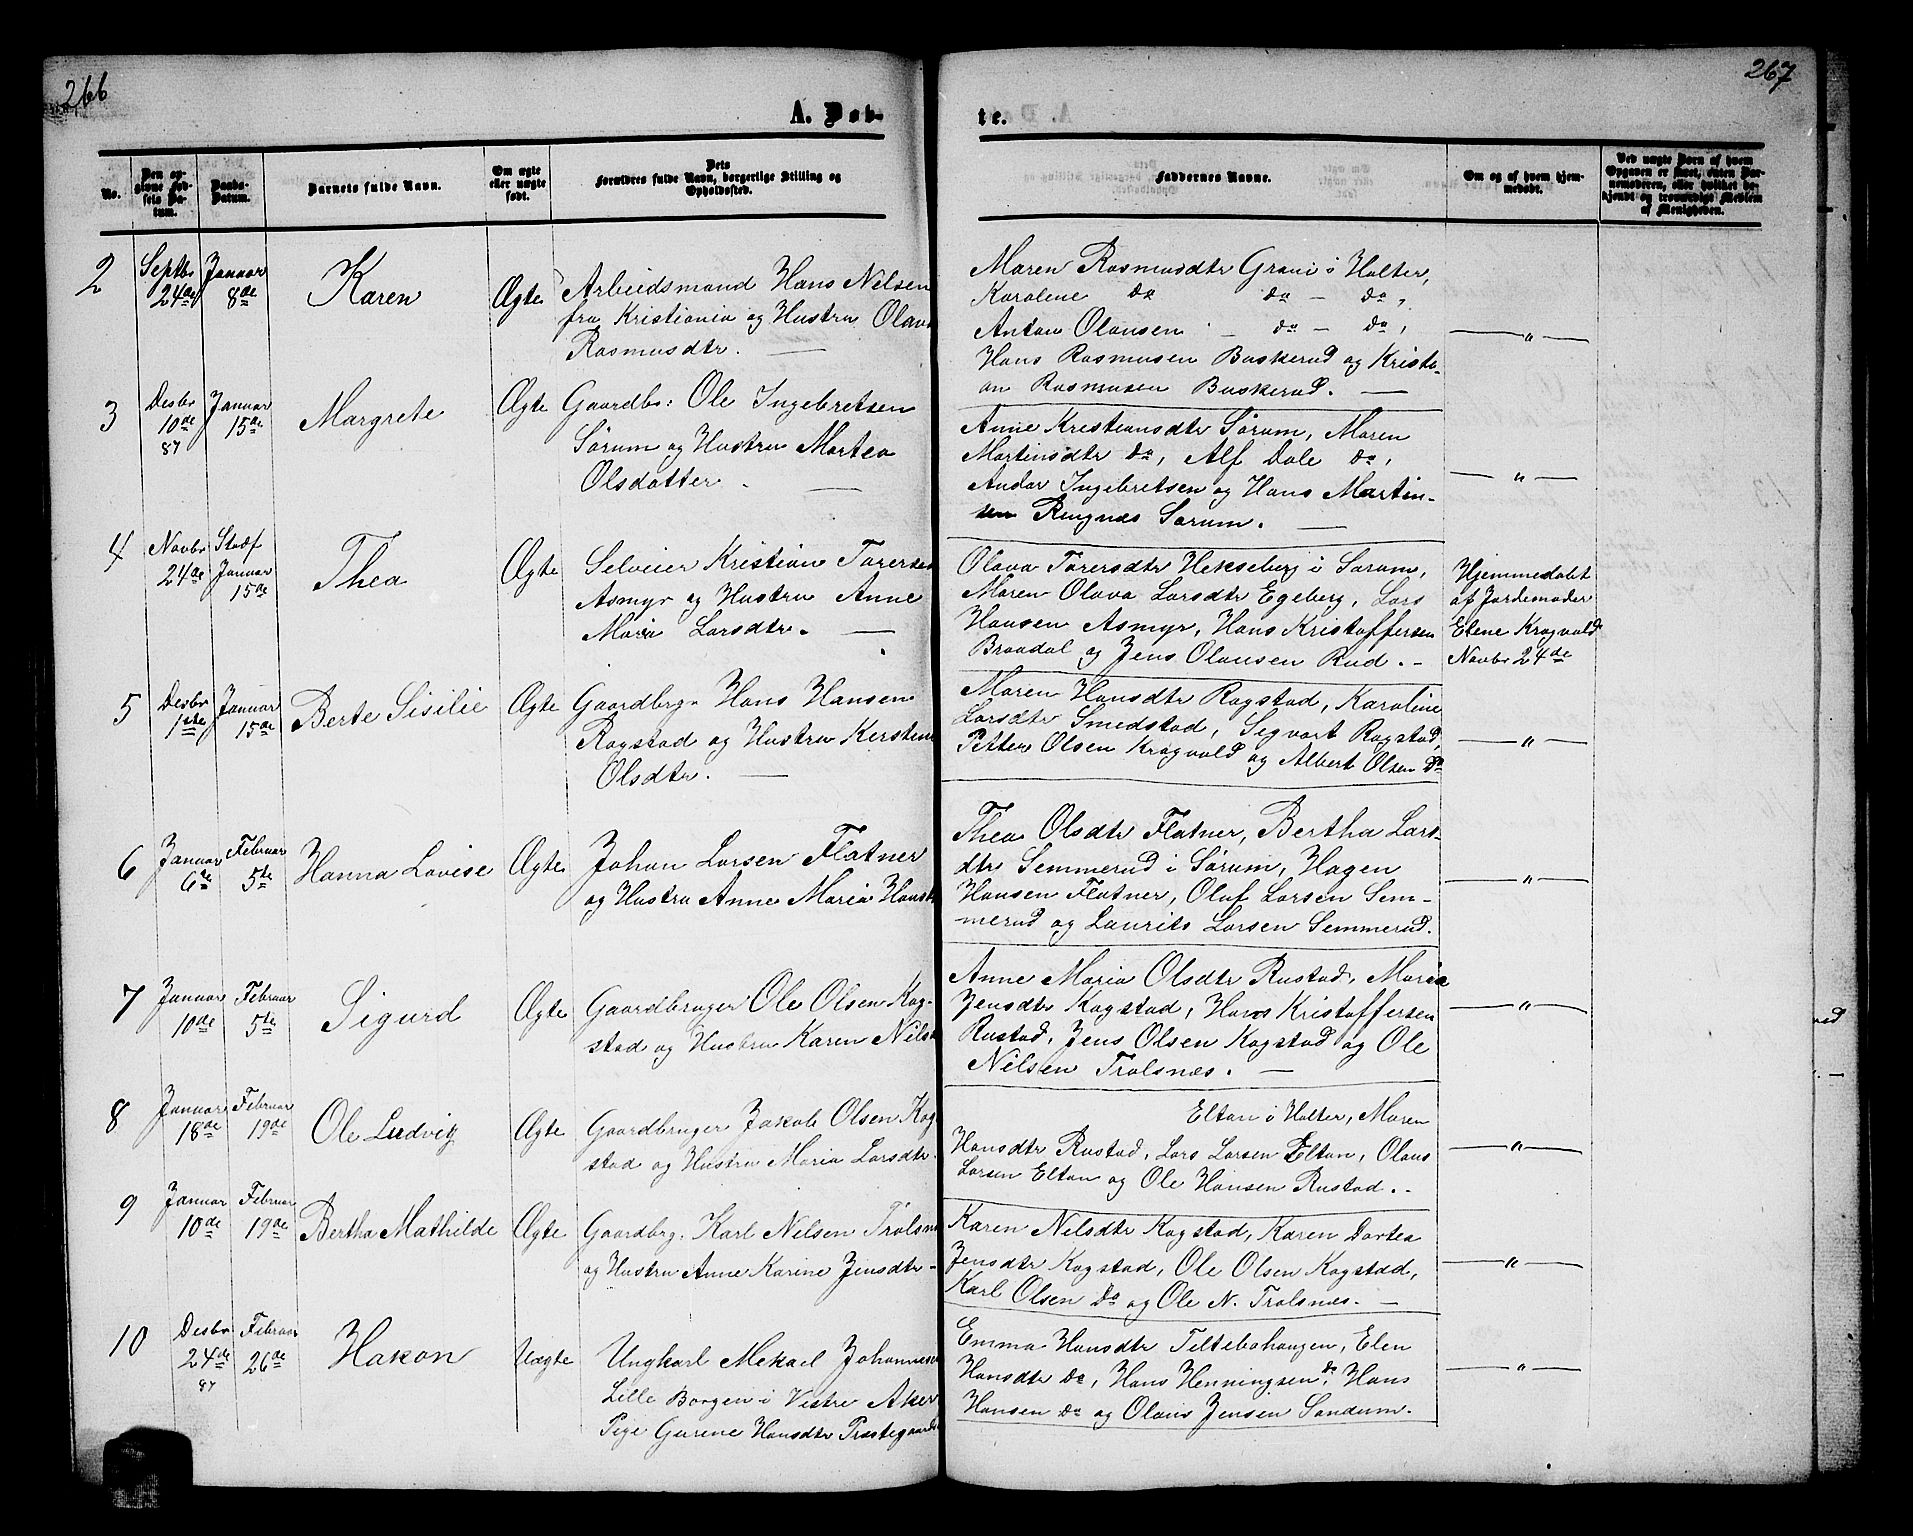 266
267
A. Døb-
te.
No.
Den op-
givne Fød-
sels Da-
tum.
Daabs-
Datum.
Barnets fulde Navn.
Om ægte
eller uægte
født.
Dets
Forældres fulde Navn, borgerlige Stilling og
Opholdssted.
Faddernes Navne.
Om og af hvem hjem-
medøbt.
Ved uægte Børn af hvem
Opgaven er skeet, enten Bar-
nemoderen, eller hvilket be-
kjendt og troværdige Medlem
af Menigheden.
2
Septbr
24de
Januar
8de
Karen
Ægte
Arbeidsmand Hans Nilsen
fra Kristiania og Hustru Olava
Rasmusdtr. —
Maren Rasmusdtr Grani i Holter,
Karolene do do — do,
Anton Olausen — do — do,
Hans Rasmusen Buskerud og Kristi-
an Rasmusen Buskerud. —
— " —
3
Desbr
10de
87
Januar
15de
Margrete
Ægte
Gaardbr: Ole Ingebretsen
Sørum og Hustru Martea
Olsdatter. —
Anne Kristiansdtr Sørum, Maren
Martinsdtr do, Alf Dale do,
Andor Ingebretsen og Hans Martin-
sen Ringnæs Sørum. —
— " —
4
Novbr
24de
Stadf
Januar
15de
Thea
Ægte
Selveier Kristian Torersen
Asmyr og Hustru Anne
Maria Larsdtr. —
Olava Torersdtr Hekseberg i Sørum,
Maren Olava Larsdtr Egeberg, Lars
Hansen Asmyr, Hans Kristoffersen
Braadal og Jens Olausen Rud. -
Hjemmedøbt
af Jordemoder
Elene Kragvold
Novbr 24de
5
Desbr
1ste
Januar
15de
Berte Sisilie
Ægte
Gaardbrgr Hans Hansen
Ragstad og Hustru Kerstine
Olsdtr. —
Maren Hansdtr Ragstad, Karoline
Larsdtr Smedstad, Segvart Ragstad,
Petter Olsen Kragvold og Albert Olsen do
— " —
6
Januar
6te
Februar
5te
Hanna Lovise
Ægte
Johan Larsen Flatner
og Hustru Anne Maria Hansd
Thea Olsdtr Flatner, Bertha Lars-
dtr Semmerud i Sørum, Hagen
Hansen Flatner, Oluf Larsen Sem-
merud og Laurits Larsen Semmerud.
— " —
7
Januar
10de
Februar
5te
Sigurd
Ægte
Gaardbruger Ole Olsen Kog-
stad og Hustru Karen Nilsd
Anne Maria Olsdtr Rustad, Maria
Jensdtr Kogstad, Hans Kristoffersen
Rustad, Jens Olsen Kogstad og Ole
Nilsen Trolsnæs. —
— " —
8
Januar
18de
Februar
19de
Ole Ludvig
Ægte
Gaardbruger Jakob Olsen Kog
stad og Hustru Maria Larsdtr.
Eltan i Holter, Maren
Hansdtr Rustad, Lars Larsen Eltan, Olaus
Larsen Eltan og Ole Hansen Rustad. -
— " —
9
Januar
10de
Februar
19de
Bertha Mathilde
Ægte
Gaardbrg. Karl Nilsen Trolsnæ
og Hustru Anne Karine Jensdtr -
Karen Nilsdtr Kogstad, Karen Dortea
Jensdtr Kogstad, Ole Olsen Kogstad,
Karl Olsen do og Ole N. Trolsnæs. —
— " —
10
Desbr
24de
87
Februar
26de
Hakon
Uægte
Ungkarl Mekael Johannesen
Lille Borgen i Vestre Aker
Pige Gurine Hansdtr Præstegaards
Emma Hansdtr Teltebohaugen, Elen
Hansdtr do, Hans Henningsen do, Hans
Hansen do og Olaus Jensen Sandum.
— " —